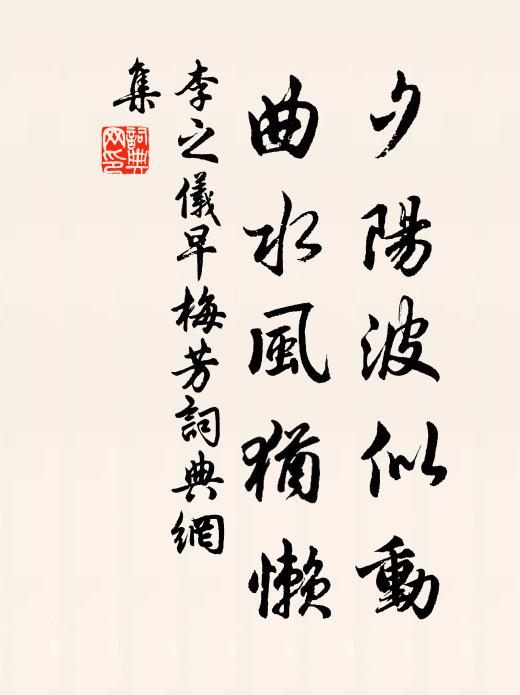 夕陽波似動
曲水風猶懶
李之儀早梅芳詞典網
集
詞典網印